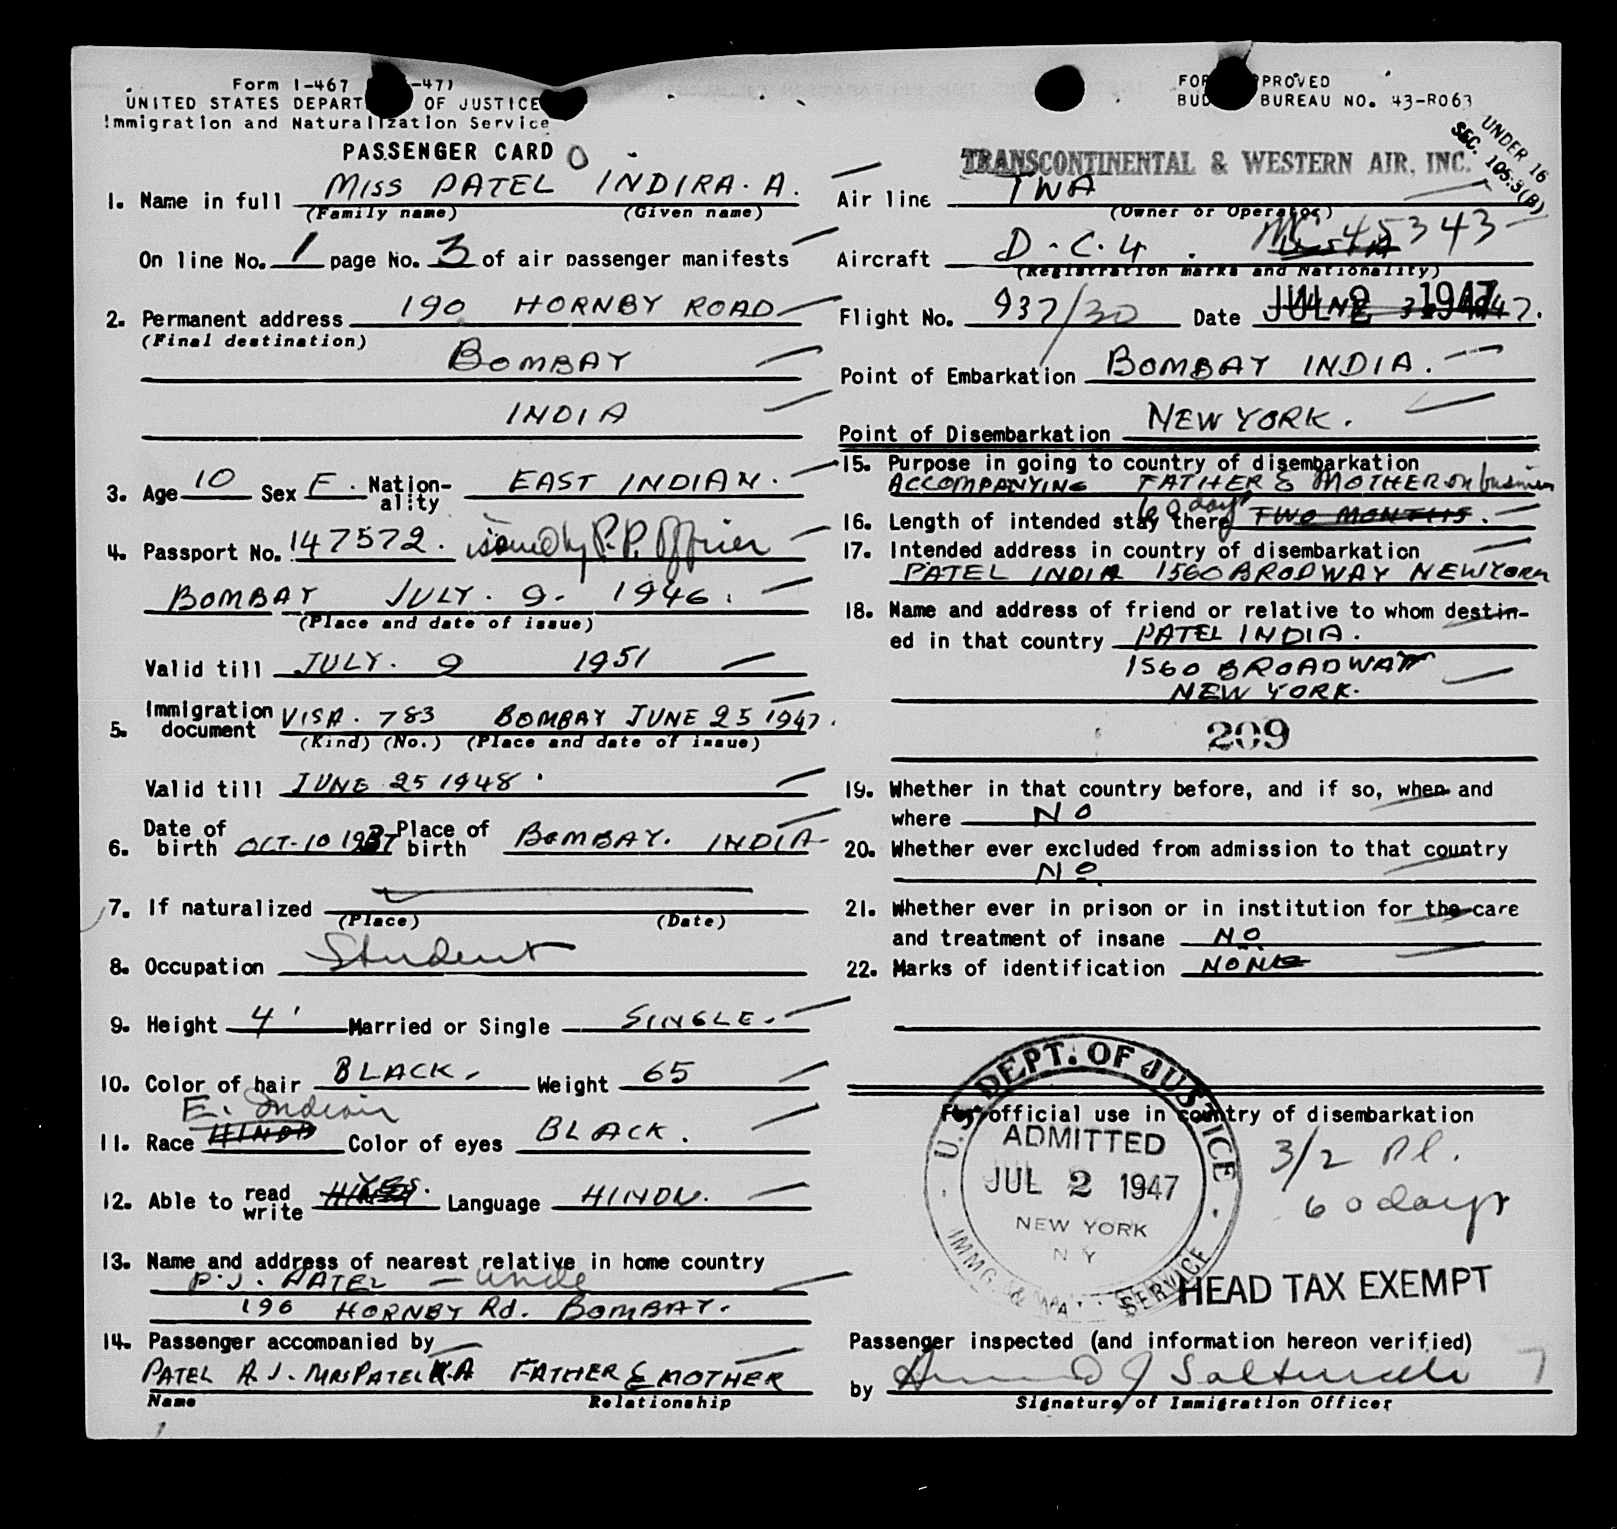 Form I-467 -47)
UNITED STATES DEPART OF JUSTICE
Immigration and Naturalization Service
PASSENGER CARD
FOR PPROVED
BUD BUREAU NO. 43-R063
UNDER 16
SEC. 105.3(B)
TRANSCONTINENTAL & WESTERN AIR, INC.
1. Name in full MISS PATEL INDIRA. A.
(Family name) (Given name)
On line No. 1 page No. 3 of air passenger manifests
2. Permanent address 190 HORNBY ROAD
(Final destination)
BOMBAY
INDIA
3. Age 10 Sex F. Nation-ality EAST INDIAN.
4. Passport No. 147572. issued by P.P. Officer
BOMBAY JULY. 9. 1946.
(Place and date of issue)
Valid till JULY. 9 1951
5. Immigration document VISA. 783 BOMBAY JUNE 25 1947.
(Kind) (No.) (Place and date of issue)
Valid till JUNE 25 1948.
6. Date of birth OCT-10 1937 Place of birth BOMBAY. INDIA
7. If naturalized
(Place) (Date)
8. Occupation Student
9. Height 4' Married or Single SINGLE.
10. Color of hair BLACK. Weight 65
E. Indian
11. Race HINDU Color of eyes BLACK.
12. Able to read write YES. Language HINDU.
13. Name and address of nearest relative in home country
P.J. PATEL - uncle
190 HORNBY Rd. BOMBAY.
14. Passenger accompanied by
PATEL A. J. MRS PATEL K.A FATHER & MOTHER
Name Relationship
Air line TWA
(Owner or Operator)
Aircraft D.C.4. NC 45343
(Registration marks and Nationality)
Flight No. 937/30 Date JUL 2 1947
Point of Embarkation BOMBAY INDIA.
Point of Disembarkation NEW YORK.
15. Purpose in going to country of disembarkation
ACCOMPANYING FATHER & MOTHER on business
60 days
16. Length of intended stay there TWO MONTHS.
17. Intended address in country of disembarkation
PATEL INDIA 1560 BRODWAY NEWYORK
18. Name and address of friend or relative to whom destin-
ed in that country PATEL INDIA.
1560 BROADWAY
NEW YORK.
209
19. Whether in that country before, and if so, when and
where NO
20. Whether ever excluded from admission to that country
NO
21. Whether ever in prison or in institution for the care
and treatment of insane NO
22. Marks of identification NONE
For official use in country of disembarkation
U.S. DEPT. OF JUSTICE
ADMITTED
JUL 2 1947
NEW YORK
N Y
IMMG. & NAT. SERVICE
3/2 Pl.
60 days
HEAD TAX EXEMPT
Passenger inspected (and information hereon verified)
by
Signature of Immigration Officer